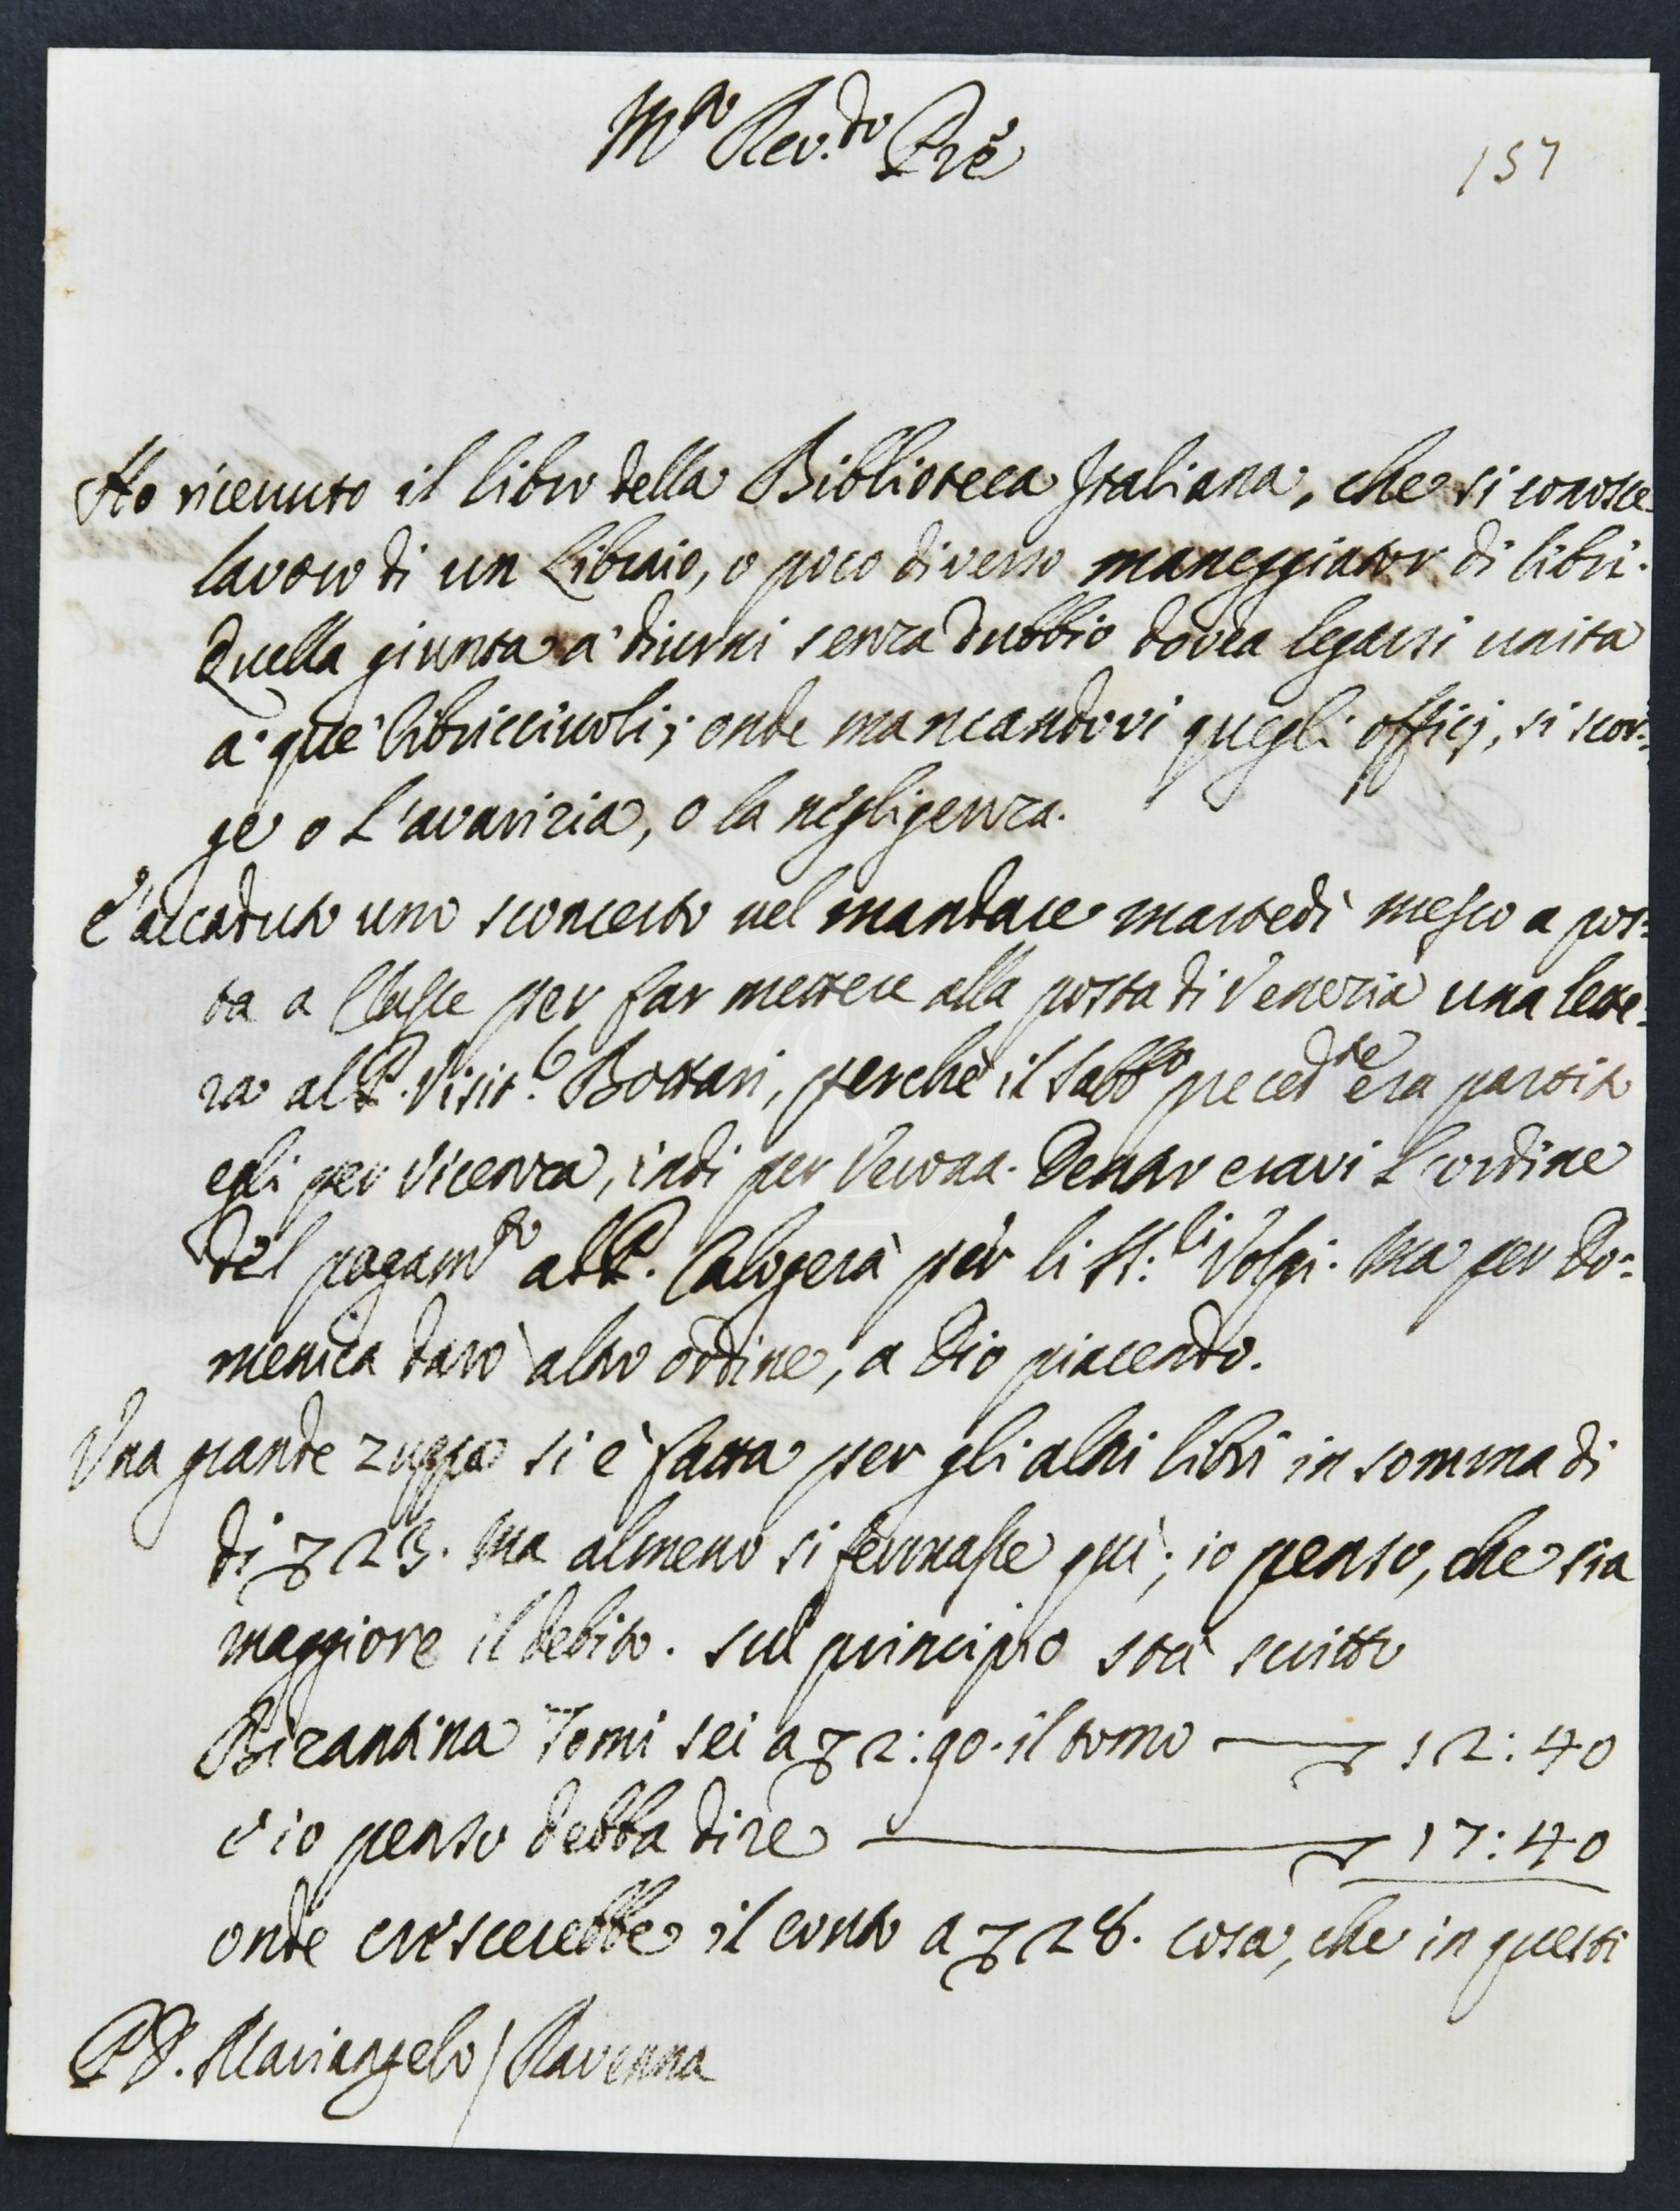 M.to Rev.do Pre
157
Ho riceuuto il libro della Biblioteca Italiana, che si conosce
lavoro di un Libraio, o poco diverso maneggiator di libri.
Quella giunta a' diurni senza dubbio dovea legarsi unita
a' que' libricciuoli; onde mancandovi quegli officj, si scor=
ge o l'avarizia, o la negligenza.
È accaduto uno sconcerto nel mandare martedì messo a pos=
ta a Classe per far mettere alla posta di Venezia una lette=
ra al P. Visit.e Bottari, perchè il Sabb.o preced.te era partito
egli per Vicenza, indi per Verona. Dentro eravi l'ordine
del pagam.to al P. Calogerà per li SS.ri Volpi. Ma per Do=
menica darò altro ordine, a Dio piacendo.
Una grande zuppa si è fatta per gli altri libri in somma di
di 23. Ma almeno si fermasse quì; io penso, che sia
maggiore il debito. Sul principio stà scritto
Bizantina Tomi sei a 2:90. il tomo — 12:40
e io penso debba dire — 17:40
onde crescerebbe il conto a 28. cosa, che in questi
P.D. Mariangelo / Ravenna